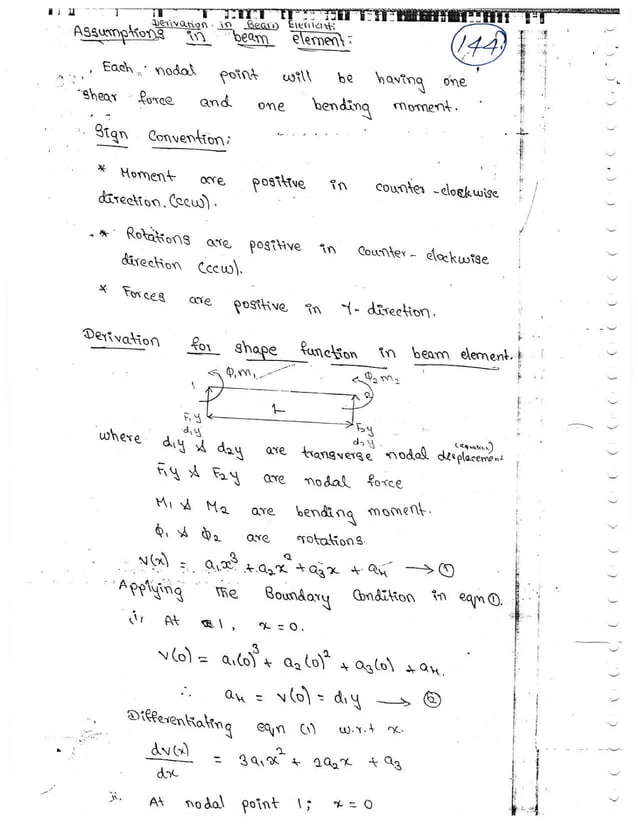 Derivation in Beam Element:
Assumptions in beam element:
144
Each nodal point will be having one
shear force and one bending moment.
Sign Convention:
* Moment are positive in counter-clockwise
direction. (ccw).
* Rotations are positive in counter-clockwise
direction (ccw).
* Forces are positive in Y-direction.
Derivation for shape function in beam element.
ϕ₁m₁ ϕ₂m₂
1 2
L
F₁y F₂y
d₁y d₂y
where d₁y & d₂y are transverse nodal displacement
F₁y & F₂y are nodal force
M₁ & M₂ are bending moment.
ϕ₁ & ϕ₂ are rotations.
v(x) = a₁x³ + a₂x² + a₃x + a₄ → ①
Applying the Boundary Condition in eqn ①.
i, At 1, x = 0.
v(0) = a₁(0)³ + a₂(0)² + a₃(0) + a₄.
∴ a₄ = v(0) = d₁y → ②
Differentiating eqn (1) w.r.t x.
dv(x)/dx = 3a₁x² + 2a₂x + a₃
ii. At nodal point 1; x = 0